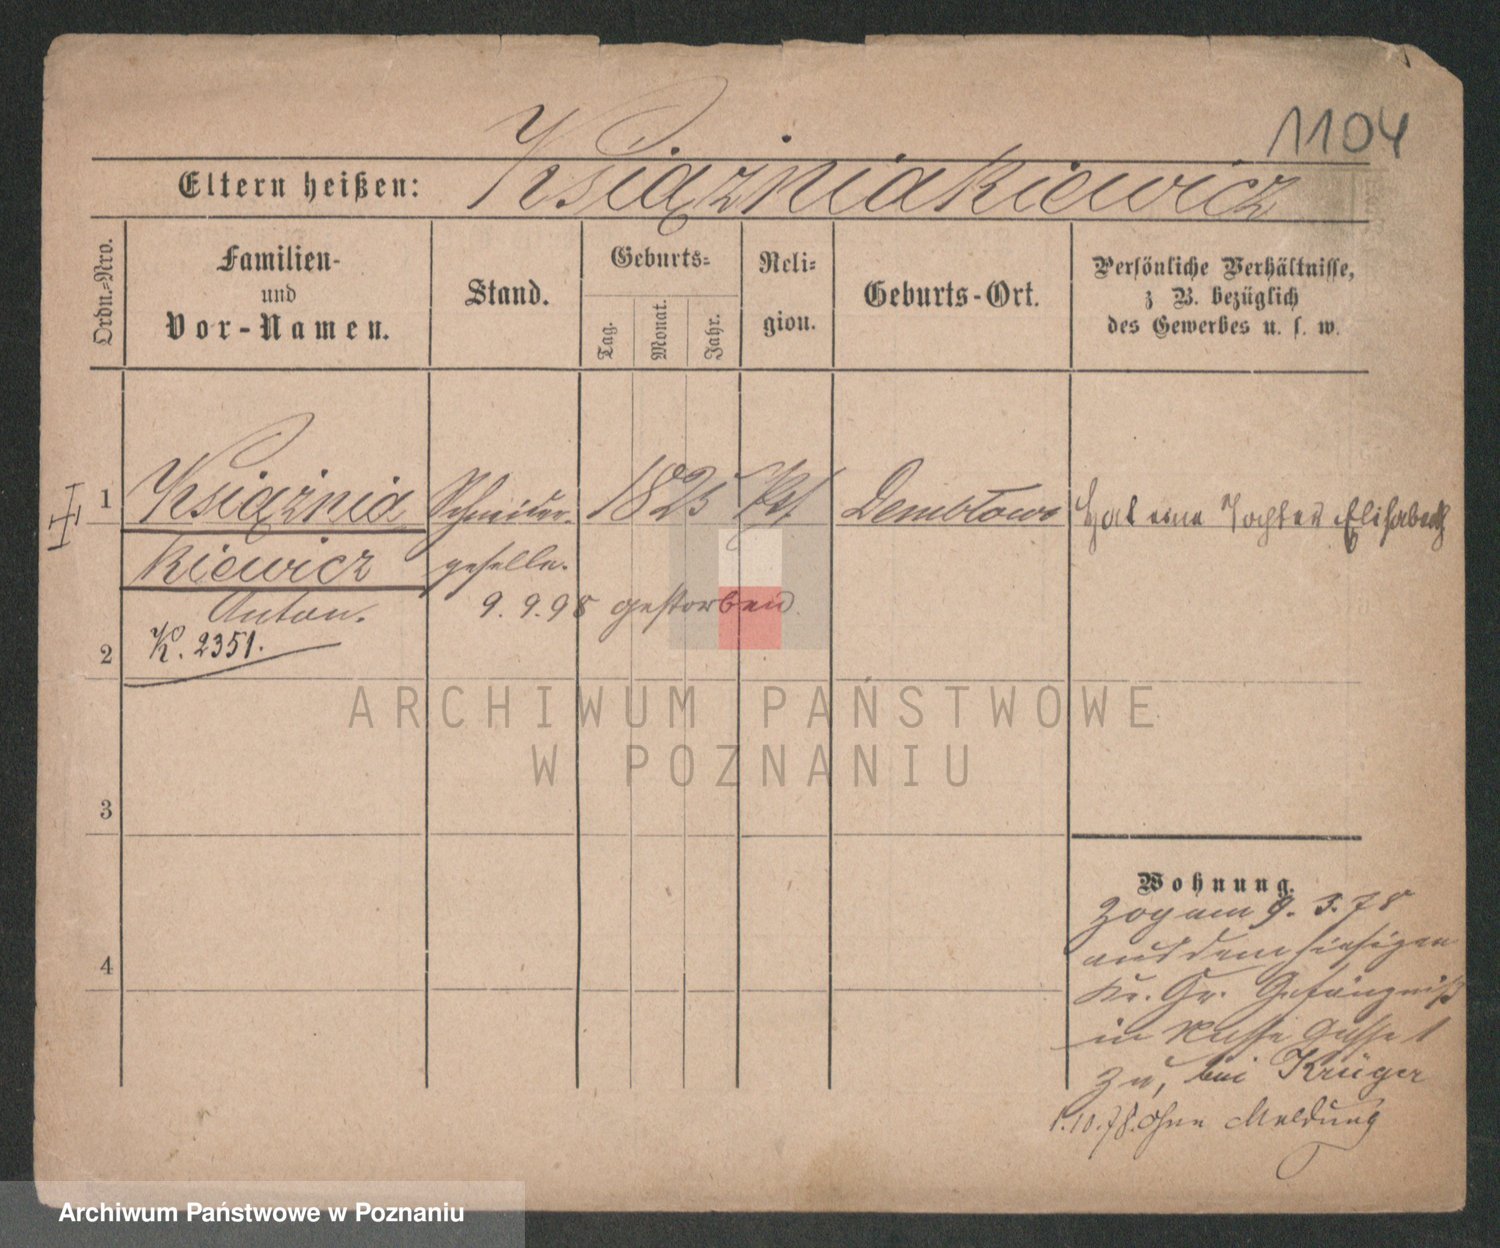 1104
Eltern heißen: Książniakiewicz
Ordn.-Nro.
Familien-
und
Vor-Namen.
Stand.
Geburts-
Tag.
Monat.
Jahr.
Reli-
gion.
Geburts-Ort.
Persönliche Verhältnisse,
z B. bezüglich
des Gewerbes u. s. w.
1 Książnia Schneider- 1825 Dembłowo Hat eine Tochter Elisabeth
kiewicz geselle.
Anton. 9. 9. 98 gestorben.
K. 2351.
2
ARCHIWUM PAŃSTWOWE
W POZNANIU
3
Wohnung.
zog am 9. 3. 78
aus dem hiesigen
4
Kr. Gr. Gefängniß
in Gasse 1
zu, bei Krüger
1.10.78. ohne Meldung
Archiwum Państwowe w Poznaniu